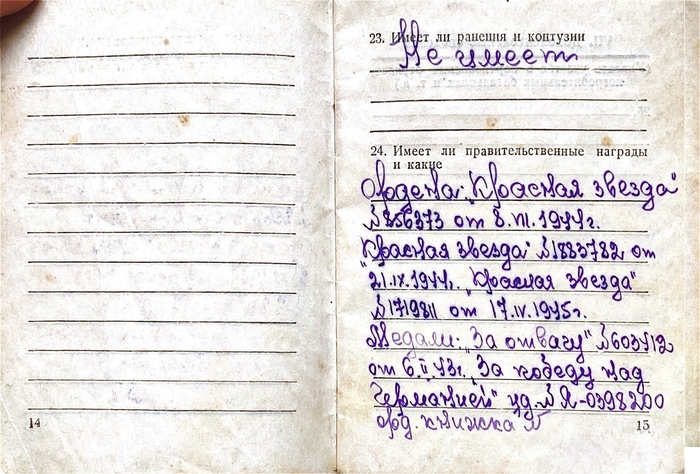 14
23. Имеет ли ранения и контузии
Не имеет
24. Имеет ли правительственные награды
и какие
Ордена: "Красная звезда"
№856373 от 8.VII.1944г.
"Красная звезда" №1883782 от
21.IX.1944г. "Красная звезда"
№1719811 от 17.IV.1945г.
Медали: "За отвагу" №603412
от 6.II 43г. "За победу над
Германией" уд. №Я-0398200
орд. книжка
15